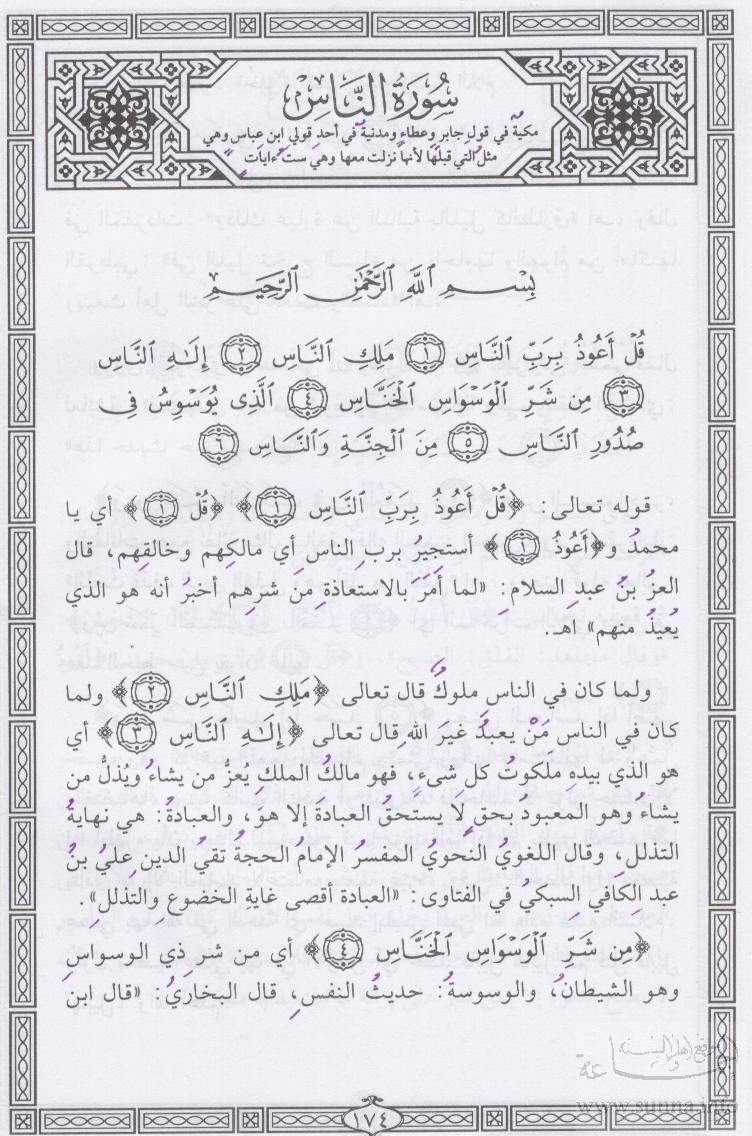 سُورَةُ النَّاسِ
مكيةٌ في قول جابر وعطاء ومدنيةٌ في أحد قولي ابن عباس وهي
مثلُ التي قبلَها لأنها نزلت معها وهي ستُ ءايات
بِسْمِ ٱللَّهِ ٱلرَّحْمَٰنِ ٱلرَّحِيمِ
قُلْ أَعُوذُ بِرَبِّ ٱلنَّاسِ ﴿١﴾ مَلِكِ ٱلنَّاسِ ﴿٢﴾ إِلَٰهِ ٱلنَّاسِ
﴿٣﴾ مِن شَرِّ ٱلْوَسْوَاسِ ٱلْخَنَّاسِ ﴿٤﴾ ٱلَّذِى يُوَسْوِسُ فِى
صُدُورِ ٱلنَّاسِ ﴿٥﴾ مِنَ ٱلْجِنَّةِ وَٱلنَّاسِ ﴿٦﴾
قوله تعالى: ﴿قُلْ أَعُوذُ بِرَبِّ ٱلنَّاسِ ﴿١﴾﴾ ﴿قُلْ ﴿١﴾﴾ أي يا
محمدُ و﴿أَعُوذُ ﴿١﴾﴾ أستجير برب الناسِ أي مالكِهم وخالقِهم، قال
العز بنُ عبد السلام: «لما أَمَرَ بالاستعاذة من شرهم أخبر أنه هو الذي
يعيذُ منهم» اهـ.
ولما كان في الناس ملوكٌ قال تعالى ﴿مَلِكِ ٱلنَّاسِ ﴿٢﴾﴾ ولما
كان في الناس مَنْ يعبدُ غيرَ الله قال تعالى ﴿إِلَٰهِ ٱلنَّاسِ ﴿٣﴾﴾ أي
هو الذي بيده ملكوتُ كل شىء، فهو مالكُ الملكِ يُعز من يشاء ويُذلُّ من
يشاءُ وهو المعبود بحقٍ لا يستحقُ العبادةَ إلا هوَ، والعبادةُ: هي نهايةُ
التذلل، وقال اللغويُ النحويُ المفسرُ الإمام الحجة تقي الدين عليُ بنُ
عبد الكافي السبكي في الفتاوى: «العبادة أقصى غايةِ الخضوع والتذلل».
﴿مِن شَرِّ ٱلْوَسْوَاسِ ٱلْخَنَّاسِ ﴿٤﴾﴾ أي مِن شر ذي الوسواسِ
وهو الشيطانُ، والوسوسةُ: حديثُ النفسِ، قال البخاريُ: «قال ابن
١٧٤
موقع أهل السنة
والجماعة
www.sunna.info